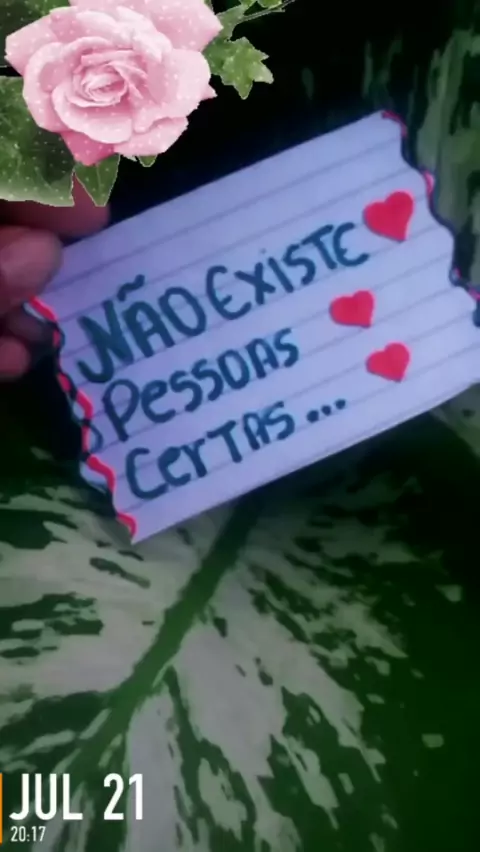 NÃO EXISTE
PESSOAS
CERTAS...
JUL 21
20:17